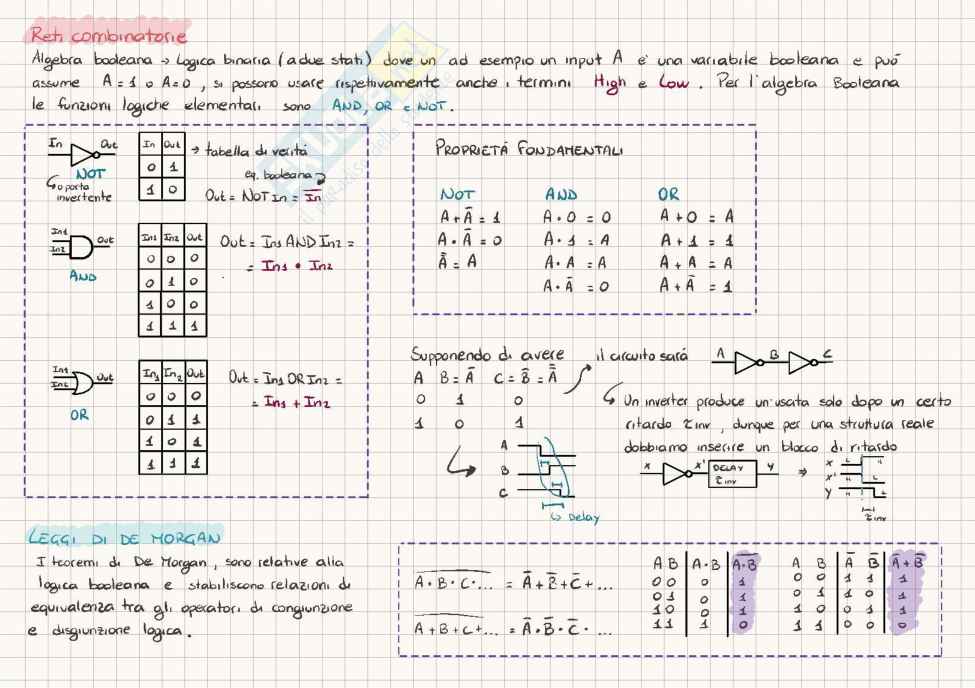 Reti combinatorie
Algebra booleana → Logica binaria (a due stati) dove un ad esempio un input A e' una variabile booleana e può
assume A = 1 o A = 0, si possono usare rispettivamente anche i termini High e Low. Per l'algebra Booleana
le funzioni logiche elementari sono AND, OR e NOT.
In Out
NOT
↳ o porta
invertente
In Out
0 1
1 0
→ tabella di verità
eq. booleana
Out = NOT In = I̅n̅
In1 Out
In2
AND
In1 In2 Out
0 0 0
0 1 0
1 0 0
1 1 1
Out = In1 AND In2 =
= In1 • In2
In1 Out
In2
OR
In1 In2 Out
0 0 0
0 1 1
1 0 1
1 1 1
Out = In1 OR In2 =
= In1 + In2
PROPRIETÀ FONDAMENTALI
NOT AND OR
A + A̅ = 1 A • 0 = 0 A + 0 = A
A • A̅ = 0 A • 1 = A A + 1 = 1
A̿ = A A • A = A A + A = A
A • A̅ = 0 A + A̅ = 1
Supponendo di avere il circuito sarà A B C
A B = A̅ C = B̅ = A̿
0 1 0
1 0 1
↳ Un inverter produce un'uscita solo dopo un certo
ritardo τinv, dunque per una struttura reale
dobbiamo inserire un blocco di ritardo
A
B
C
↳ Delay
x x' DELAY τinv y ⇒
x L H
x' H L
y H L
τinv
LEGGI DI DE MORGAN
I teoremi di De Morgan, sono relative alla
logica booleana e stabiliscono relazioni di
equivalenza tra gli operatori di congiunzione
e disgiunzione logica.
A̅ ̅•̅ ̅B̅ ̅•̅ ̅C̅ ̅•̅ ̅.̅.̅.̅ = A̅ + B̅ + C̅ + ...
A̅ ̅+̅ ̅B̅ ̅+̅ ̅C̅ ̅+̅ ̅.̅.̅.̅ = A̅ • B̅ • C̅ • ...
A B A • B A̅ ̅•̅ ̅B̅
0 0 0 1
0 1 0 1
1 0 0 1
1 1 1 0
A B A̅ B̅ A̅ + B̅
0 0 1 1 1
0 1 1 0 1
1 0 0 1 1
1 1 0 0 0